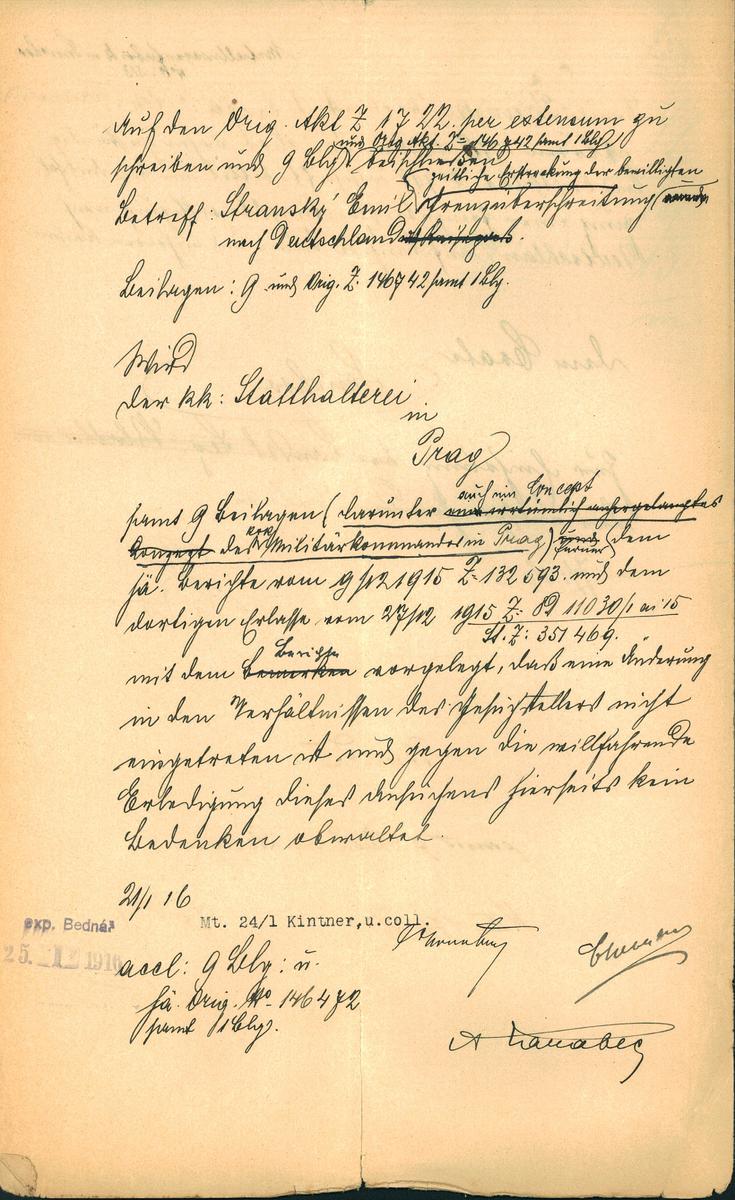 Auf den Orig. Akt Z 1722 per extensum zu
und Orig. Akt. Z= 146742 samt 1 Blg
schreiben und 9 Blg beischließen
zeitliche Erstreckung der bewilligten
Betreff: Stranský Emil Grenzüberschreitung
nach Deutschland
Beilagen: 9 und Orig. Z. 146742 samt 1 Blg.
Wird
der kk: Statthalterei
in
Prag
auch ein Concept
samt 9 Beilagen (darunter nur irrtümlich anhergelangtes
Konzept des k.u.k. Militärkommandos in Prag) und ferner dem
hä. Berichte vom 9/12 1915 Z= 132593. und dem
dortigen Erlasse vom 27/12 1915 Z= 8d 11030/1 ai 15
St. Z: 351469.
Berichte
mit dem bemerken vorgelegt, daß eine Änderung
in den Verhältnissen des Gesuchstellers nicht
eingetreten ist und gegen die willfahrende
Erledigung dieses Ansuchens hierseits kein
Bedenken obwaltet.
21/1 16
exp. Bednář
Mt. 24/1 Kintner,u.coll.
25. 1916
accl: 9 Blg: u.
hä. Orig. No 146472
samt 1 Blg.